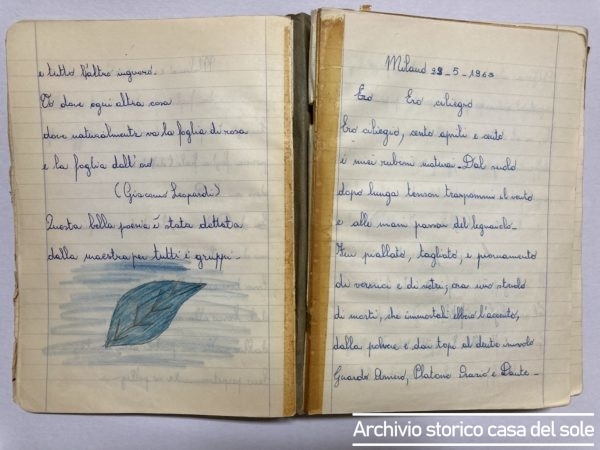 e tutto l'altro ignoro.
Vo dove ogni altra cosa
dove naturalmente va la foglia di rosa
e la foglia
(Giacomo Leopardi)
Questa bella poesia è stata dettata
dalla maestra per tutti i gruppi -
Milano
Ero Ero ciliegio
Ero ciliegio, cento aprili e cento
i miei rubini - Dal suolo
dopo lunga tenzon il vento
e alle mani passai del legnaiolo -
Fui piallato, tagliato, e
di vernici e di vetri; ora uno stuolo
di morti, che immortali ebbero l'accento,
dalla polvere e dai topi al dente involo
Guardo Omero, Platone Orazio e Dante -
Archivio storico casa del sole